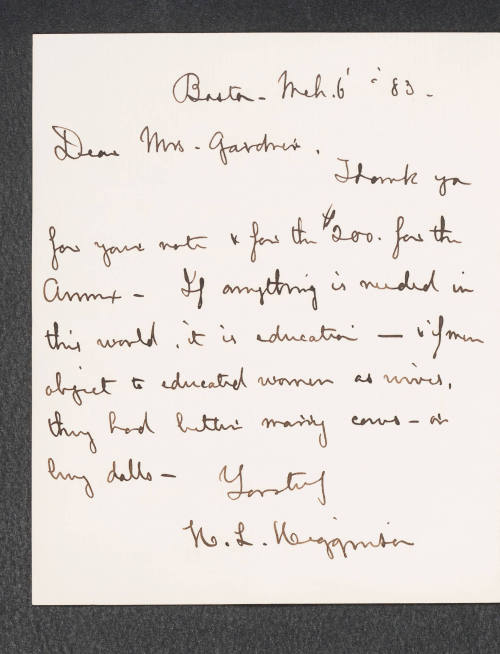 Boston - Mch. 6 '83 -
Dear Mrs. Gardner.
Thank you
for your note & for the $200. for the
Annex - If anything is needed in
this world, it is education — & if men
object to educated women as wives,
they had better marry cows - or
buy dolls - Yrs truly
H. L. Higginson